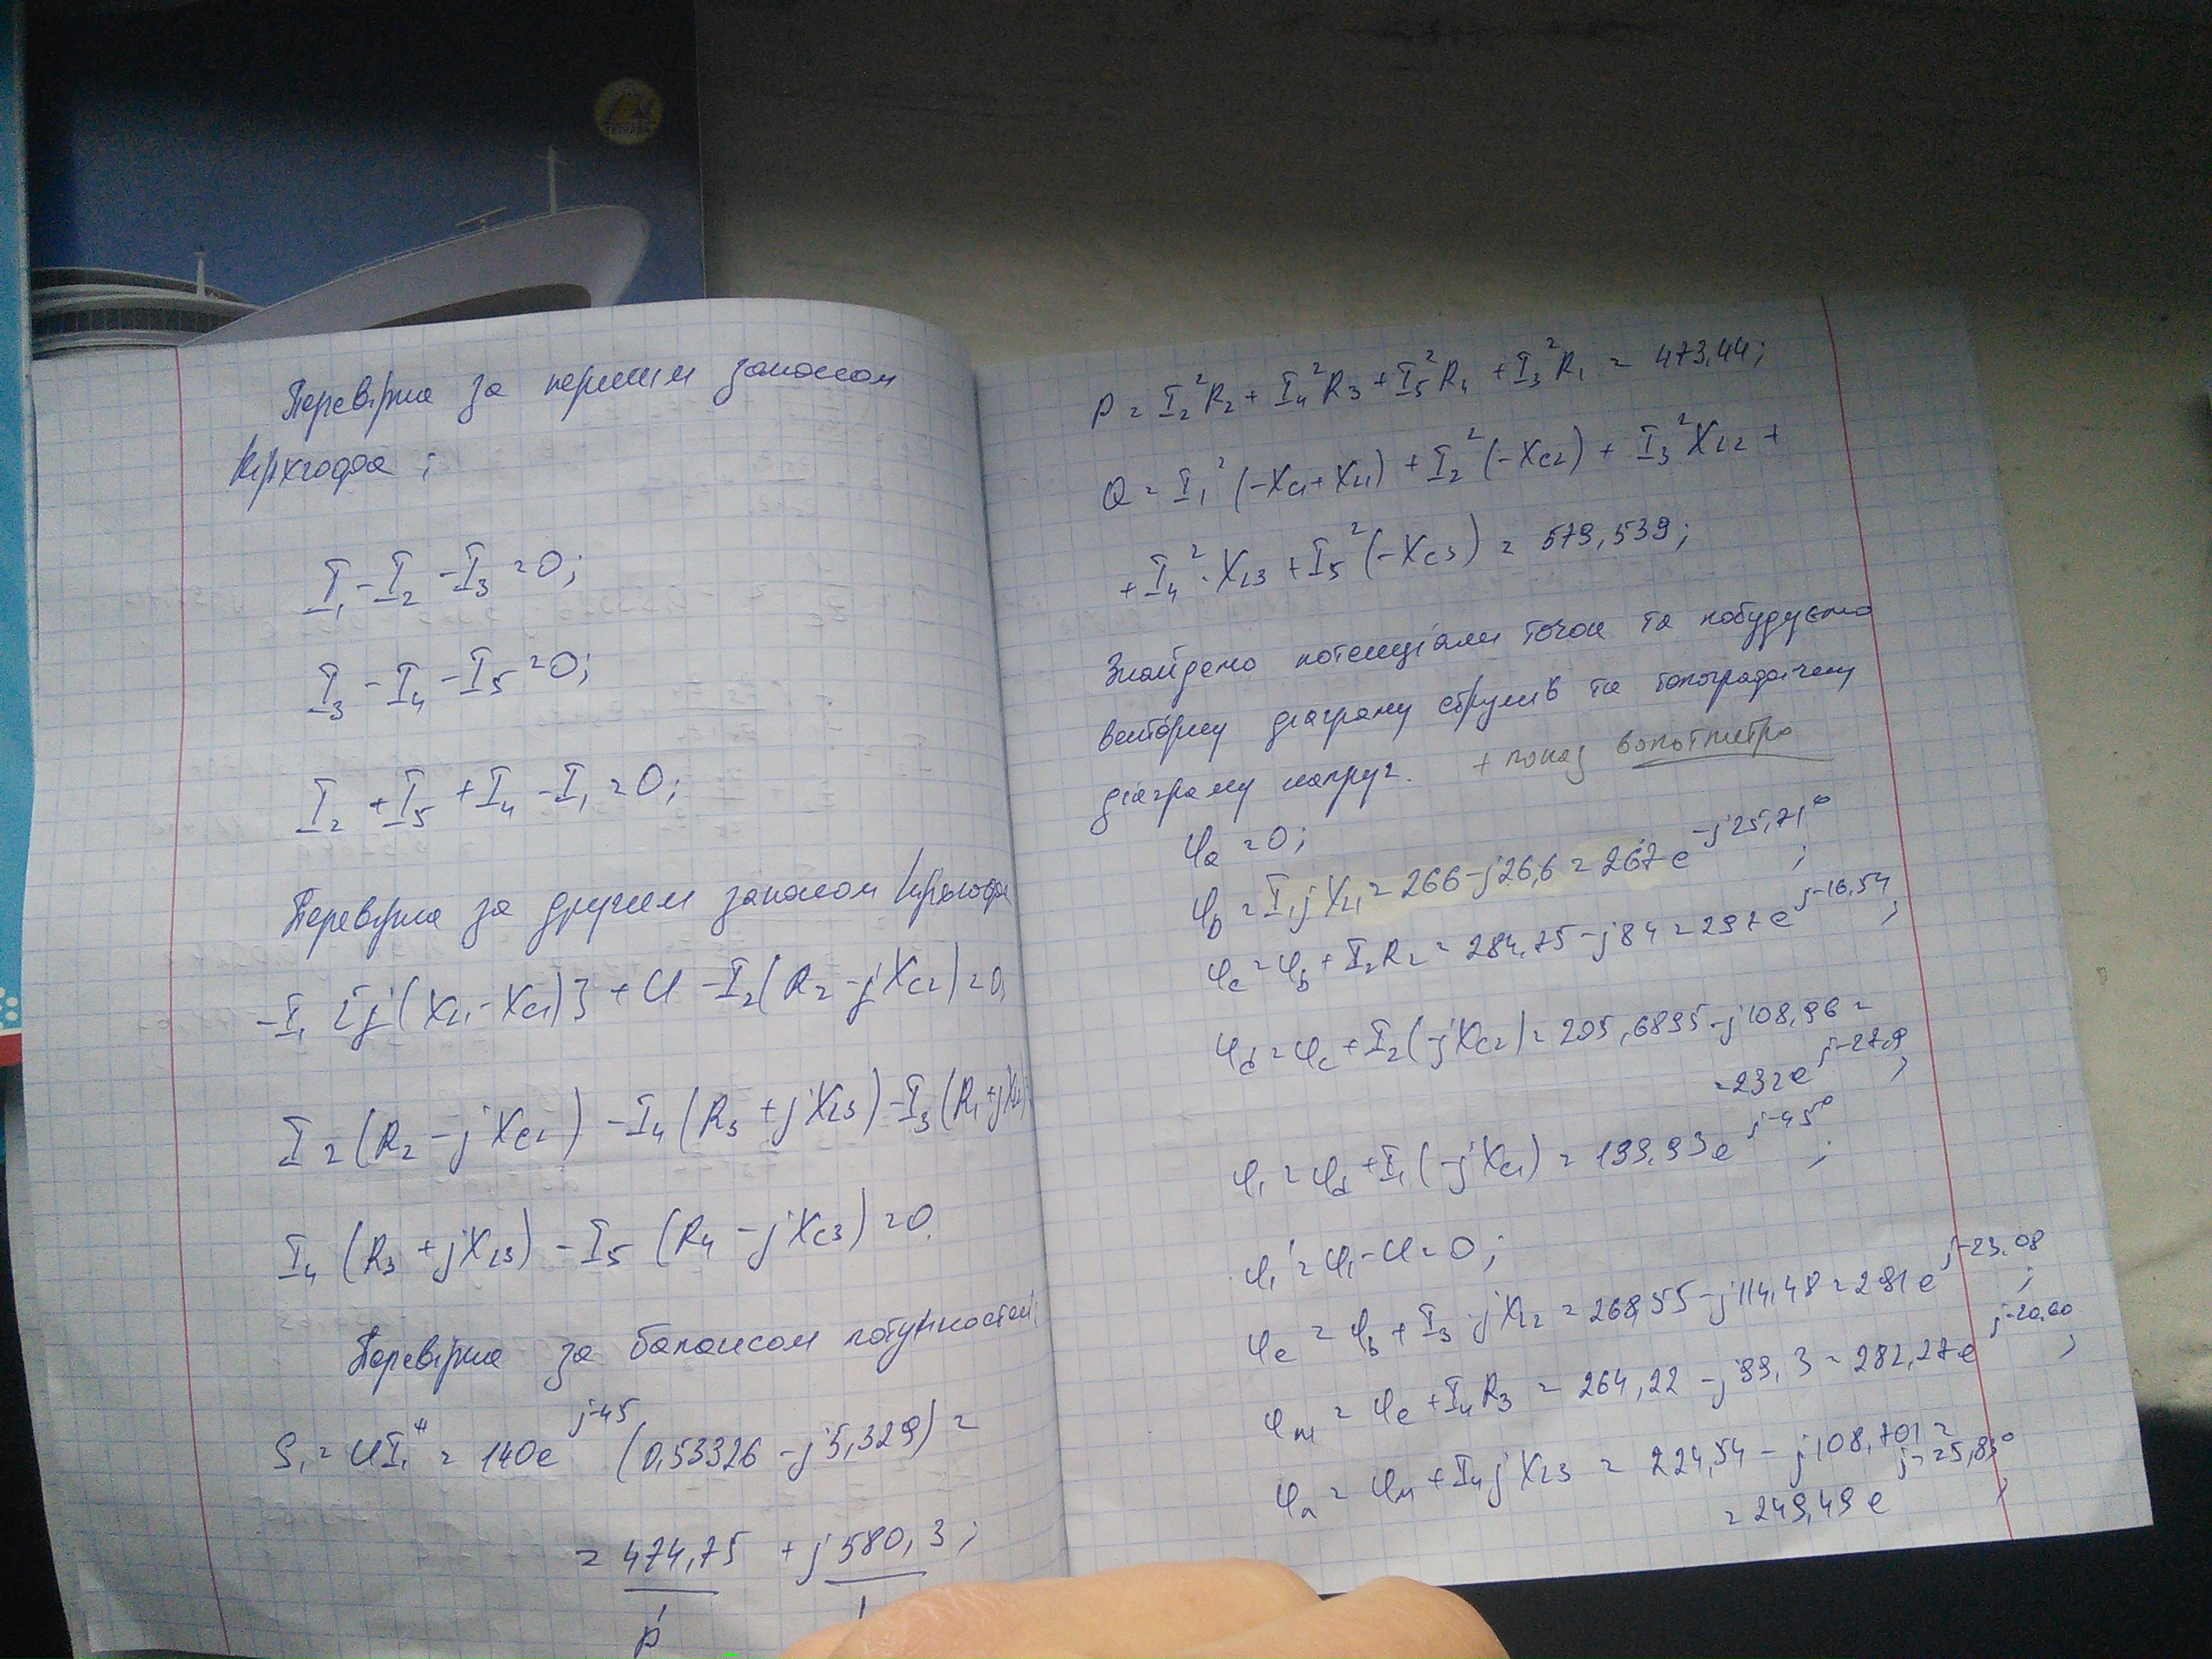 ТЕТРАДА
Перевірка за першим законом
Кірхгофа;
I₁ - I₂ - I₃ = 0;
I₃ - I₄ - I₅ = 0;
I₂ + I₅ + I₄ - I₁ = 0;
Перевірка за другим законом Кірхгофа
-I₁ [j(X_L1 - X_C1)] + U - I₂(R₂ - jX_C2) = 0,
I₂(R₂ - jX_C2) - I₄(R₃ + jX_L3) - I₃(R₁ + jX_L2)
I₄(R₃ + jX_L3) - I₅(R₄ - jX_C3) = 0.
Перевірка за балансом потужностей;
S₁ = UI₁* = 140e^(j-45) (0,53326 - j5,329) =
= 474,75 + j580,3;
P
P = I₂²R₂ + I₄²R₃ + I₅²R₄ + I₃²R₁ = 473,44;
Q = I₁²(-X_C1 + X_L1) + I₂²(-X_C2) + I₃²X_L2 +
+ I₄²·X_L3 + I₅²(-X_C3) = 579,539;
Знайдемо потенціали точок та побудуємо
векторну діаграму струмів та топографічну
діаграму напруг. + показ вольтметра
φ_a = 0;
φ_b = I₁jX_L1 = 266 - j26,6 = 267e^(-j25,71°);
φ_c = φ_b + I₂R₂ = 284,75 - j84 = 297e^(j-16,54);
φ_d = φ_c + I₂(-jX_C2) = 205,6895 - j108,96 =
= 232e^(j-27,9);
φ₁ = φ_d + I₁(-jX_C1) = 199,93e^(j-45°);
φ₁' = φ₁ - U = 0;
φ_e = φ_b + I₃·jX_L2 = 268,55 - j114,48 = 291e^(j-23,08);
φ_м = φ_e + I₄R₃ = 264,22 - j99,3 = 282,27e^(j-20,60);
φ_n = φ_м + I₄jX_L3 = 224,54 - j108,701 =
= 249,49e^(j-25,83°);